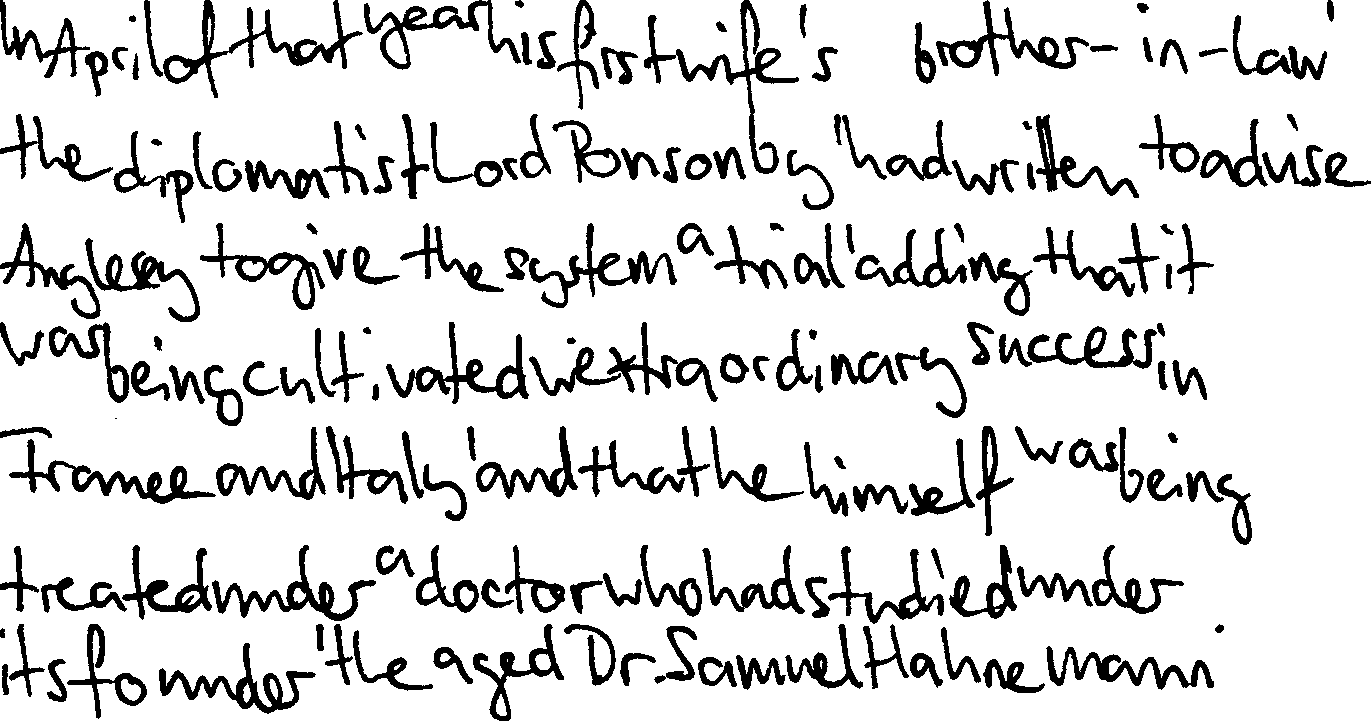 In April of that year his first wife's brother-in-law,
the diplomatist Lord Ponsonby, had written to advise
Anglesey to give the system a trial, adding that it
was being cultivated w extraordinary success in
France and Italy, and that he himself was being
treated under a doctor who had studied under
its founder, the aged Dr. Samuel Hahnemann.